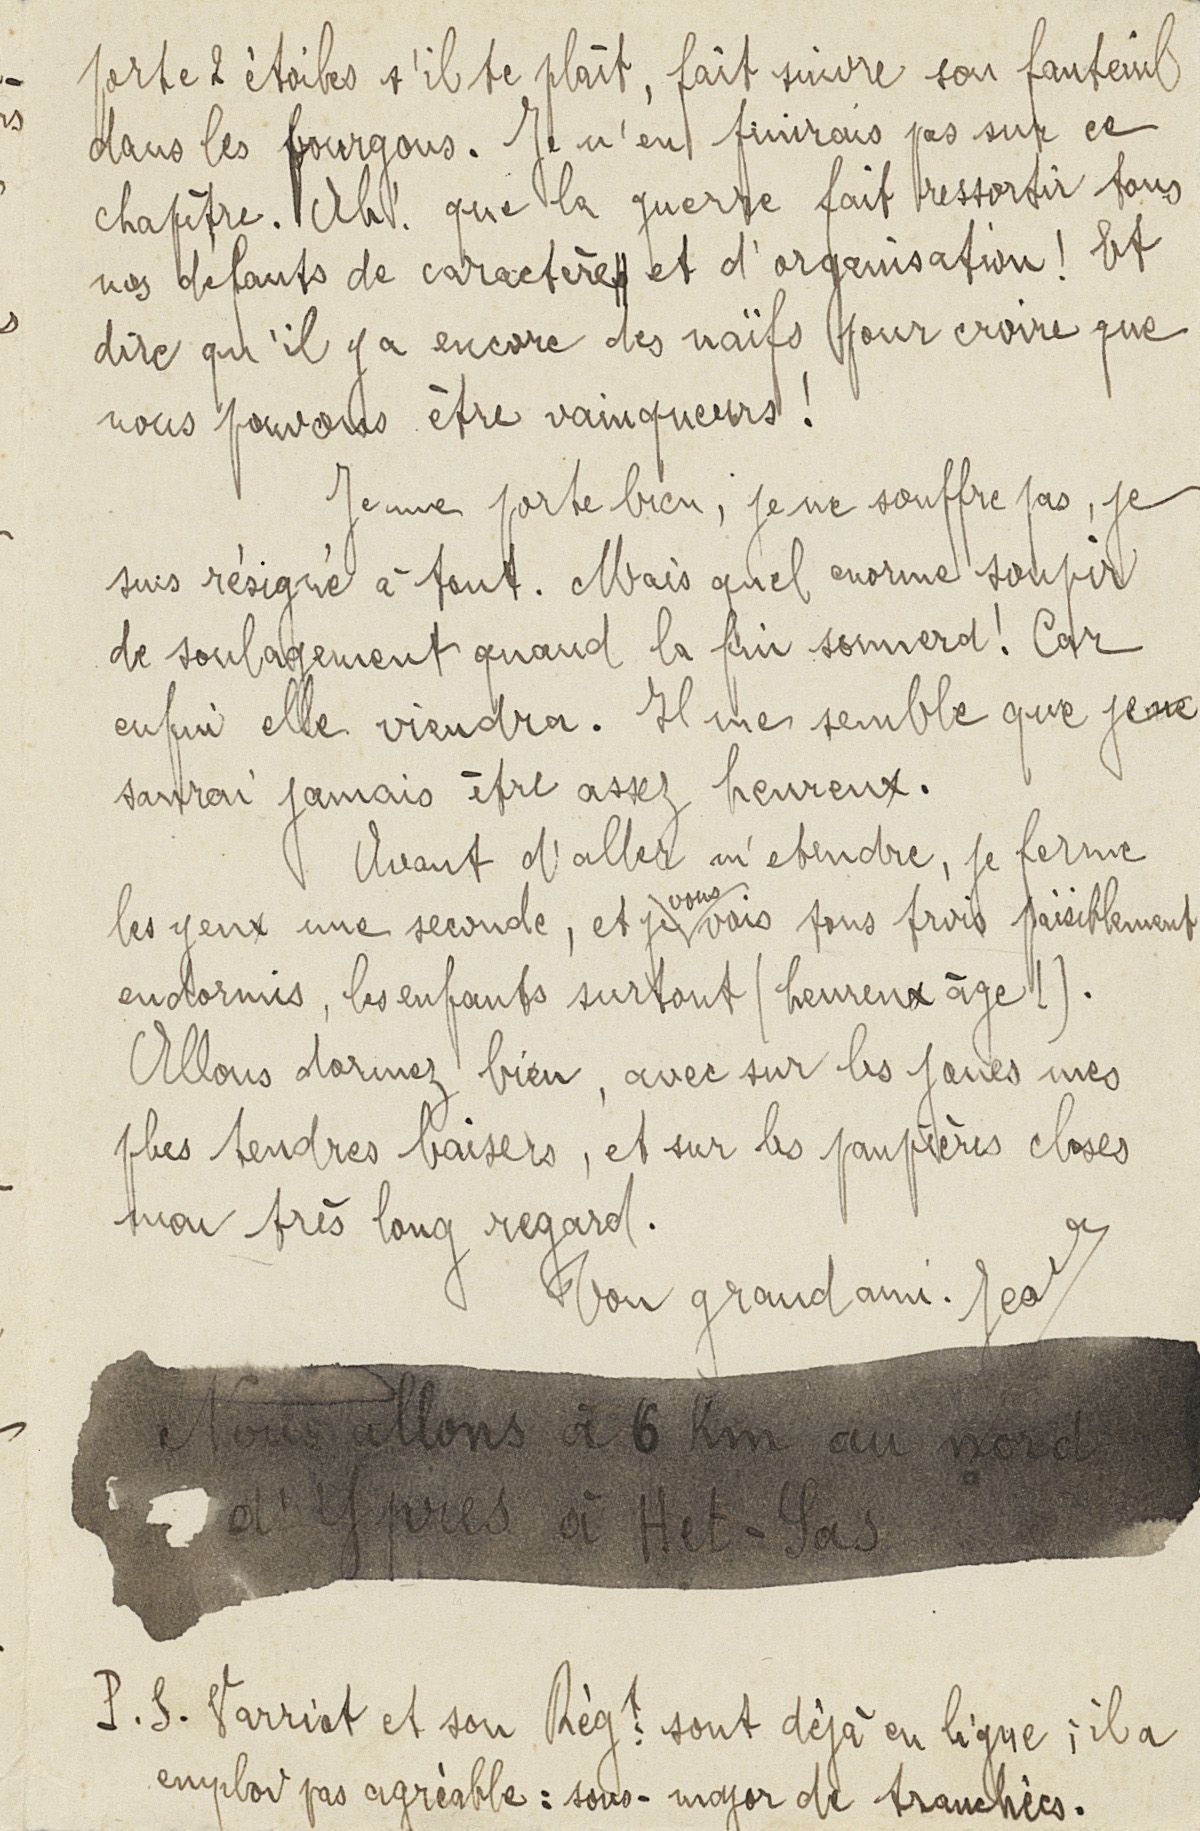 porte 2 étoiles s'il te plaît, fait suivre son fauteuil
dans les fourgons. Je n'en finirais pas sur ce
chapître. Ah! que la guerre fait ressortir tous
nos défauts de caractère et d'organisation! Et
dire qu'il y a encore des naïfs pour croire que
nous pouvons être vainqueurs!
Je me porte bien, je ne souffre pas, je
suis résigné à tout. Mais quel enorme soupir
de soulagement quand la fin sonnera! Car
enfin elle viendra. Il me semble que je ne
saurai jamais être assez heureux.
Avant d'aller m'etendre, je ferme
les yeux une seconde, et je vous vois tous trois païsiblement
endormis, les enfants surtout (heureux âge!).
Allons dormez bien, avec sur les joues mes
plus tendres baisers, et sur les paupières closes
mon très long regard.
Ton grand ami. Jean
Nous allons à 6 Km au nord
d'Ypres à Het-Sas
P.S. Varriot et son Régt sont déjà en ligne; il a
emploi pas agréable: sous-major de tranchées.